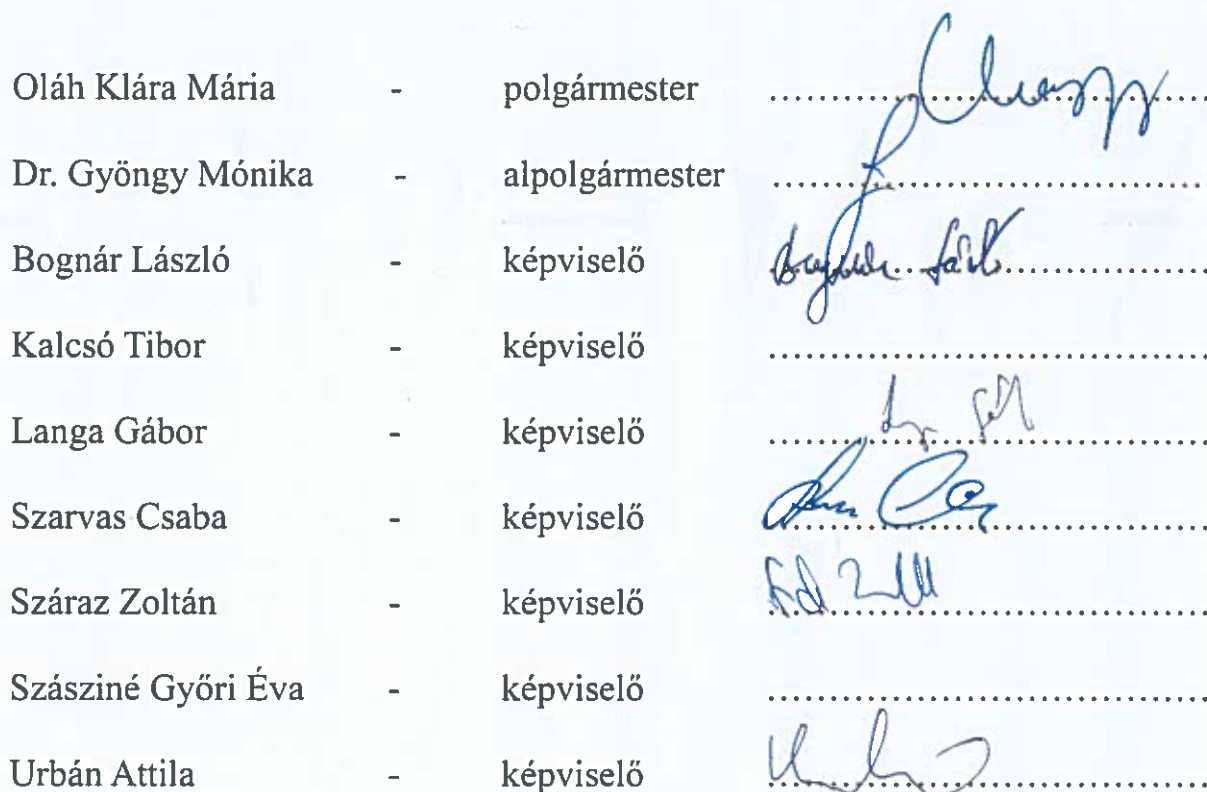 Oláh Klára Mária - polgármester ........................................
Dr. Gyöngy Mónika - alpolgármester ........................................
Bognár László - képviselő ........................................
Kalcsó Tibor - képviselő ........................................
Langa Gábor - képviselő ........................................
Szarvas Csaba - képviselő ........................................
Száraz Zoltán - képviselő ........................................
Szásziné Győri Éva - képviselő ........................................
Urbán Attila - képviselő ........................................